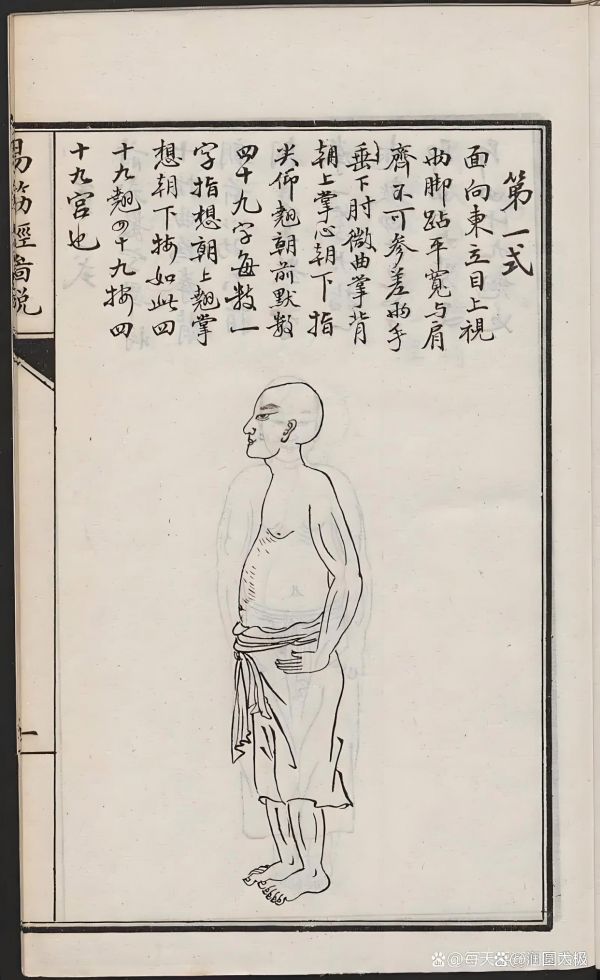 第一式
面向東立目上視
两脚跕平寬与肩
齊不可參差两手
垂下肘微曲掌背
朝上掌心朝下指
尖仰翹朝前默數
四十九字每數一
字指想朝上翹掌
想朝下按如此四
十九翹四十九按四
十九宫也
易筋經啚説
一
@每天@润圆太极